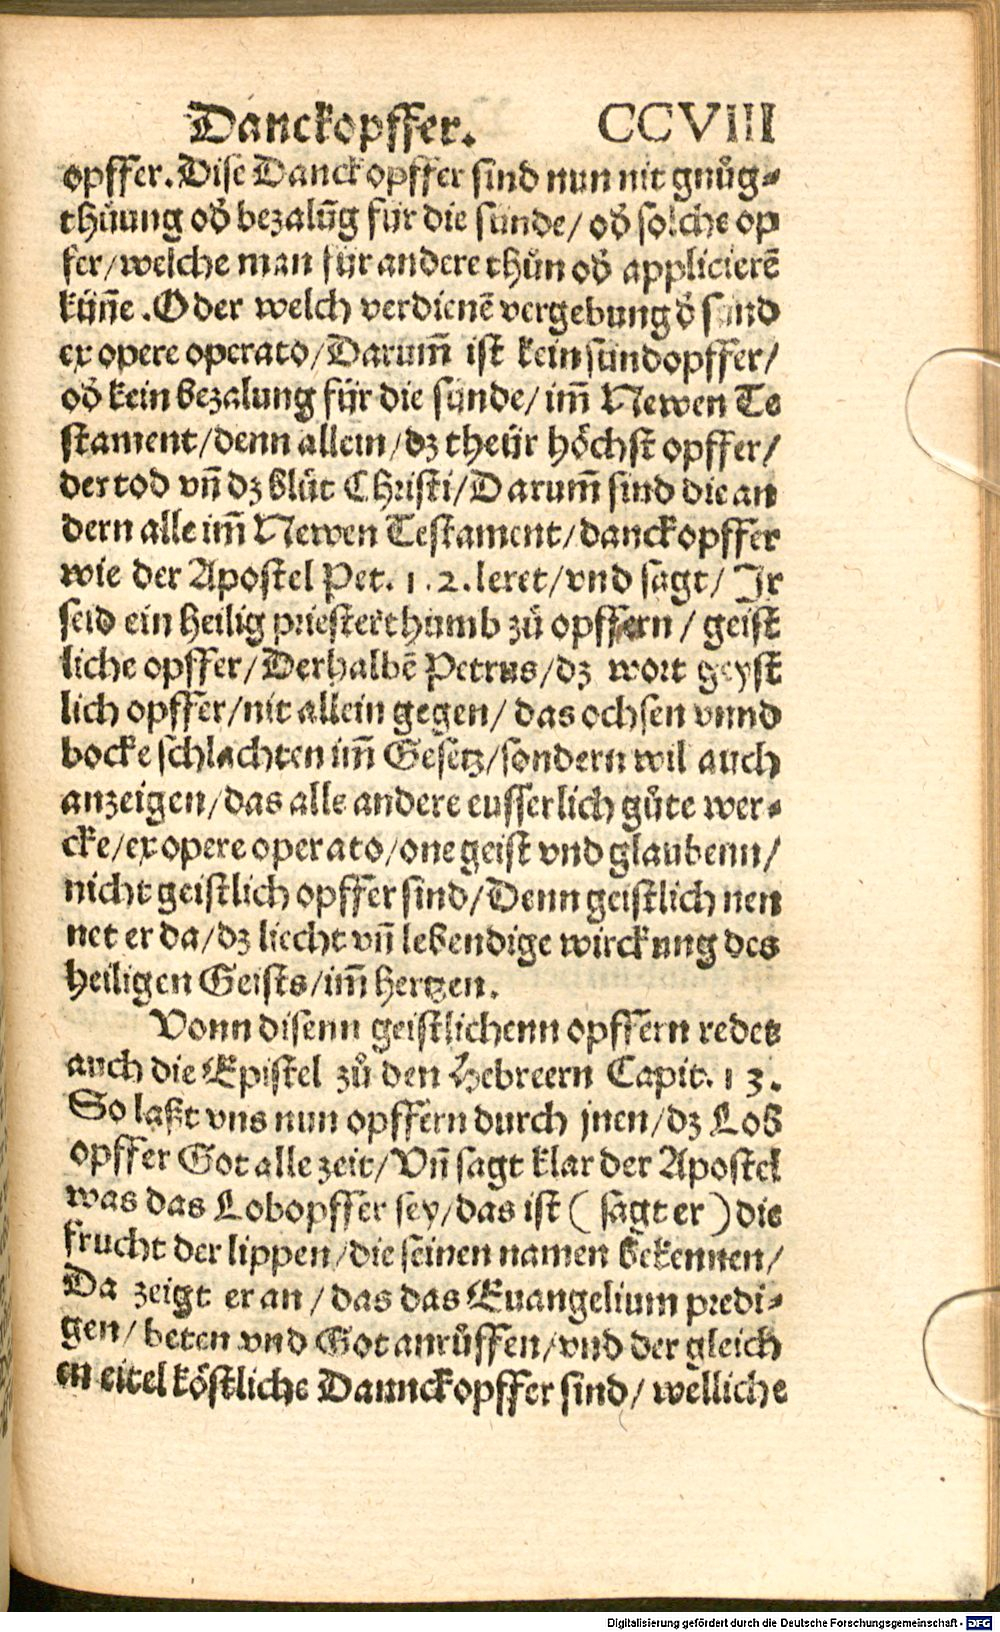 Danckopffer. CCVIII
opffer. Dise Danckopffer sind nun nit gnůg⸗
thůung od̕ bezalūg für die sünde/ od̕ solche op
fer/welche man für andere thůn od̕ applicierē
küñe. Oder welch verdienē vergebung d̕ sünd
ex opere operato/Darum̃ ist kein sündopffer/
od̕ kein bezalung für die sünde/ im̃ Newen Te
stament/denn allein/dz theür höchst opffer/
der tod vñ dz blůt Christi/Darum̃ sind die an
dern alle im̃ Newen Testament/danckopffer
wie der Apostel Pet. 1. 2. leret/vnd sagt/ Jr
seid ein heilig priesterthumb zů opffern / geist
liche opffer/Derhalbē Petrus/dz wort geyst
lich opffer/nit allein gegen/ das ochsen vnnd
bocke schlachten im̃ Gesetz/sondern wil auch
anzeigen/das alle andere eusserlich gůte wer⸗
cke/ex opere operato/one geist vnd glaubenn/
nicht geistlich opffer sind/Denn geistlich nen
net er da/dz liecht vñ lebendige wirckung des
heiligen Geists/im̃ hertzen.
Vonn disenn geistlichenn opffern redet
auch die Epistel zů den Hebreern Capit. 13.
So laßt vns nun opffern durch jnen/dz Lob
opffer Got alle zeit/Vñ sagt klar der Apostel
was das Lobopffer sey/das ist ( sagt er ) die
frucht der lippen/die seinen namen bekennen/
Da zeigt er an / das das Euangelium predi⸗
gen/ beten vnd Got anrůffen/vnd der gleich
en eitel köstliche Dannckopffer sind/ welliche
Digitalisierung gefördert durch die Deutsche Forschungsgemeinschaft - DFG